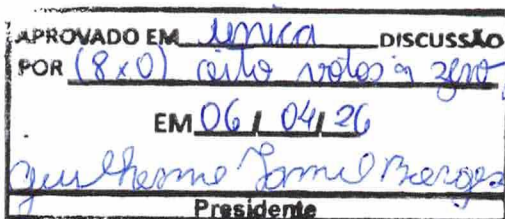 APROVADO EM única DISCUSSÃO
POR (8x0) oito votos a zero
EM 06 / 04 / 26
Guilherme Jamil Borges
Presidente